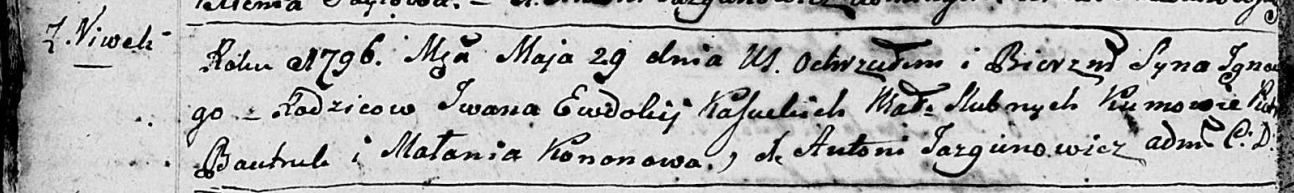 Z. Niwek
Roku 1796. Mca Maja 29 dnia Us. Ochrzciłem i Bierzm Syna Ignac
go - Rodzicow Iwana Ewdokij Kasuckich Małż Slubnych Kumowie
Bautruk i Małania Kononowa. X. Antoni Jazgunowicz adm C. D.